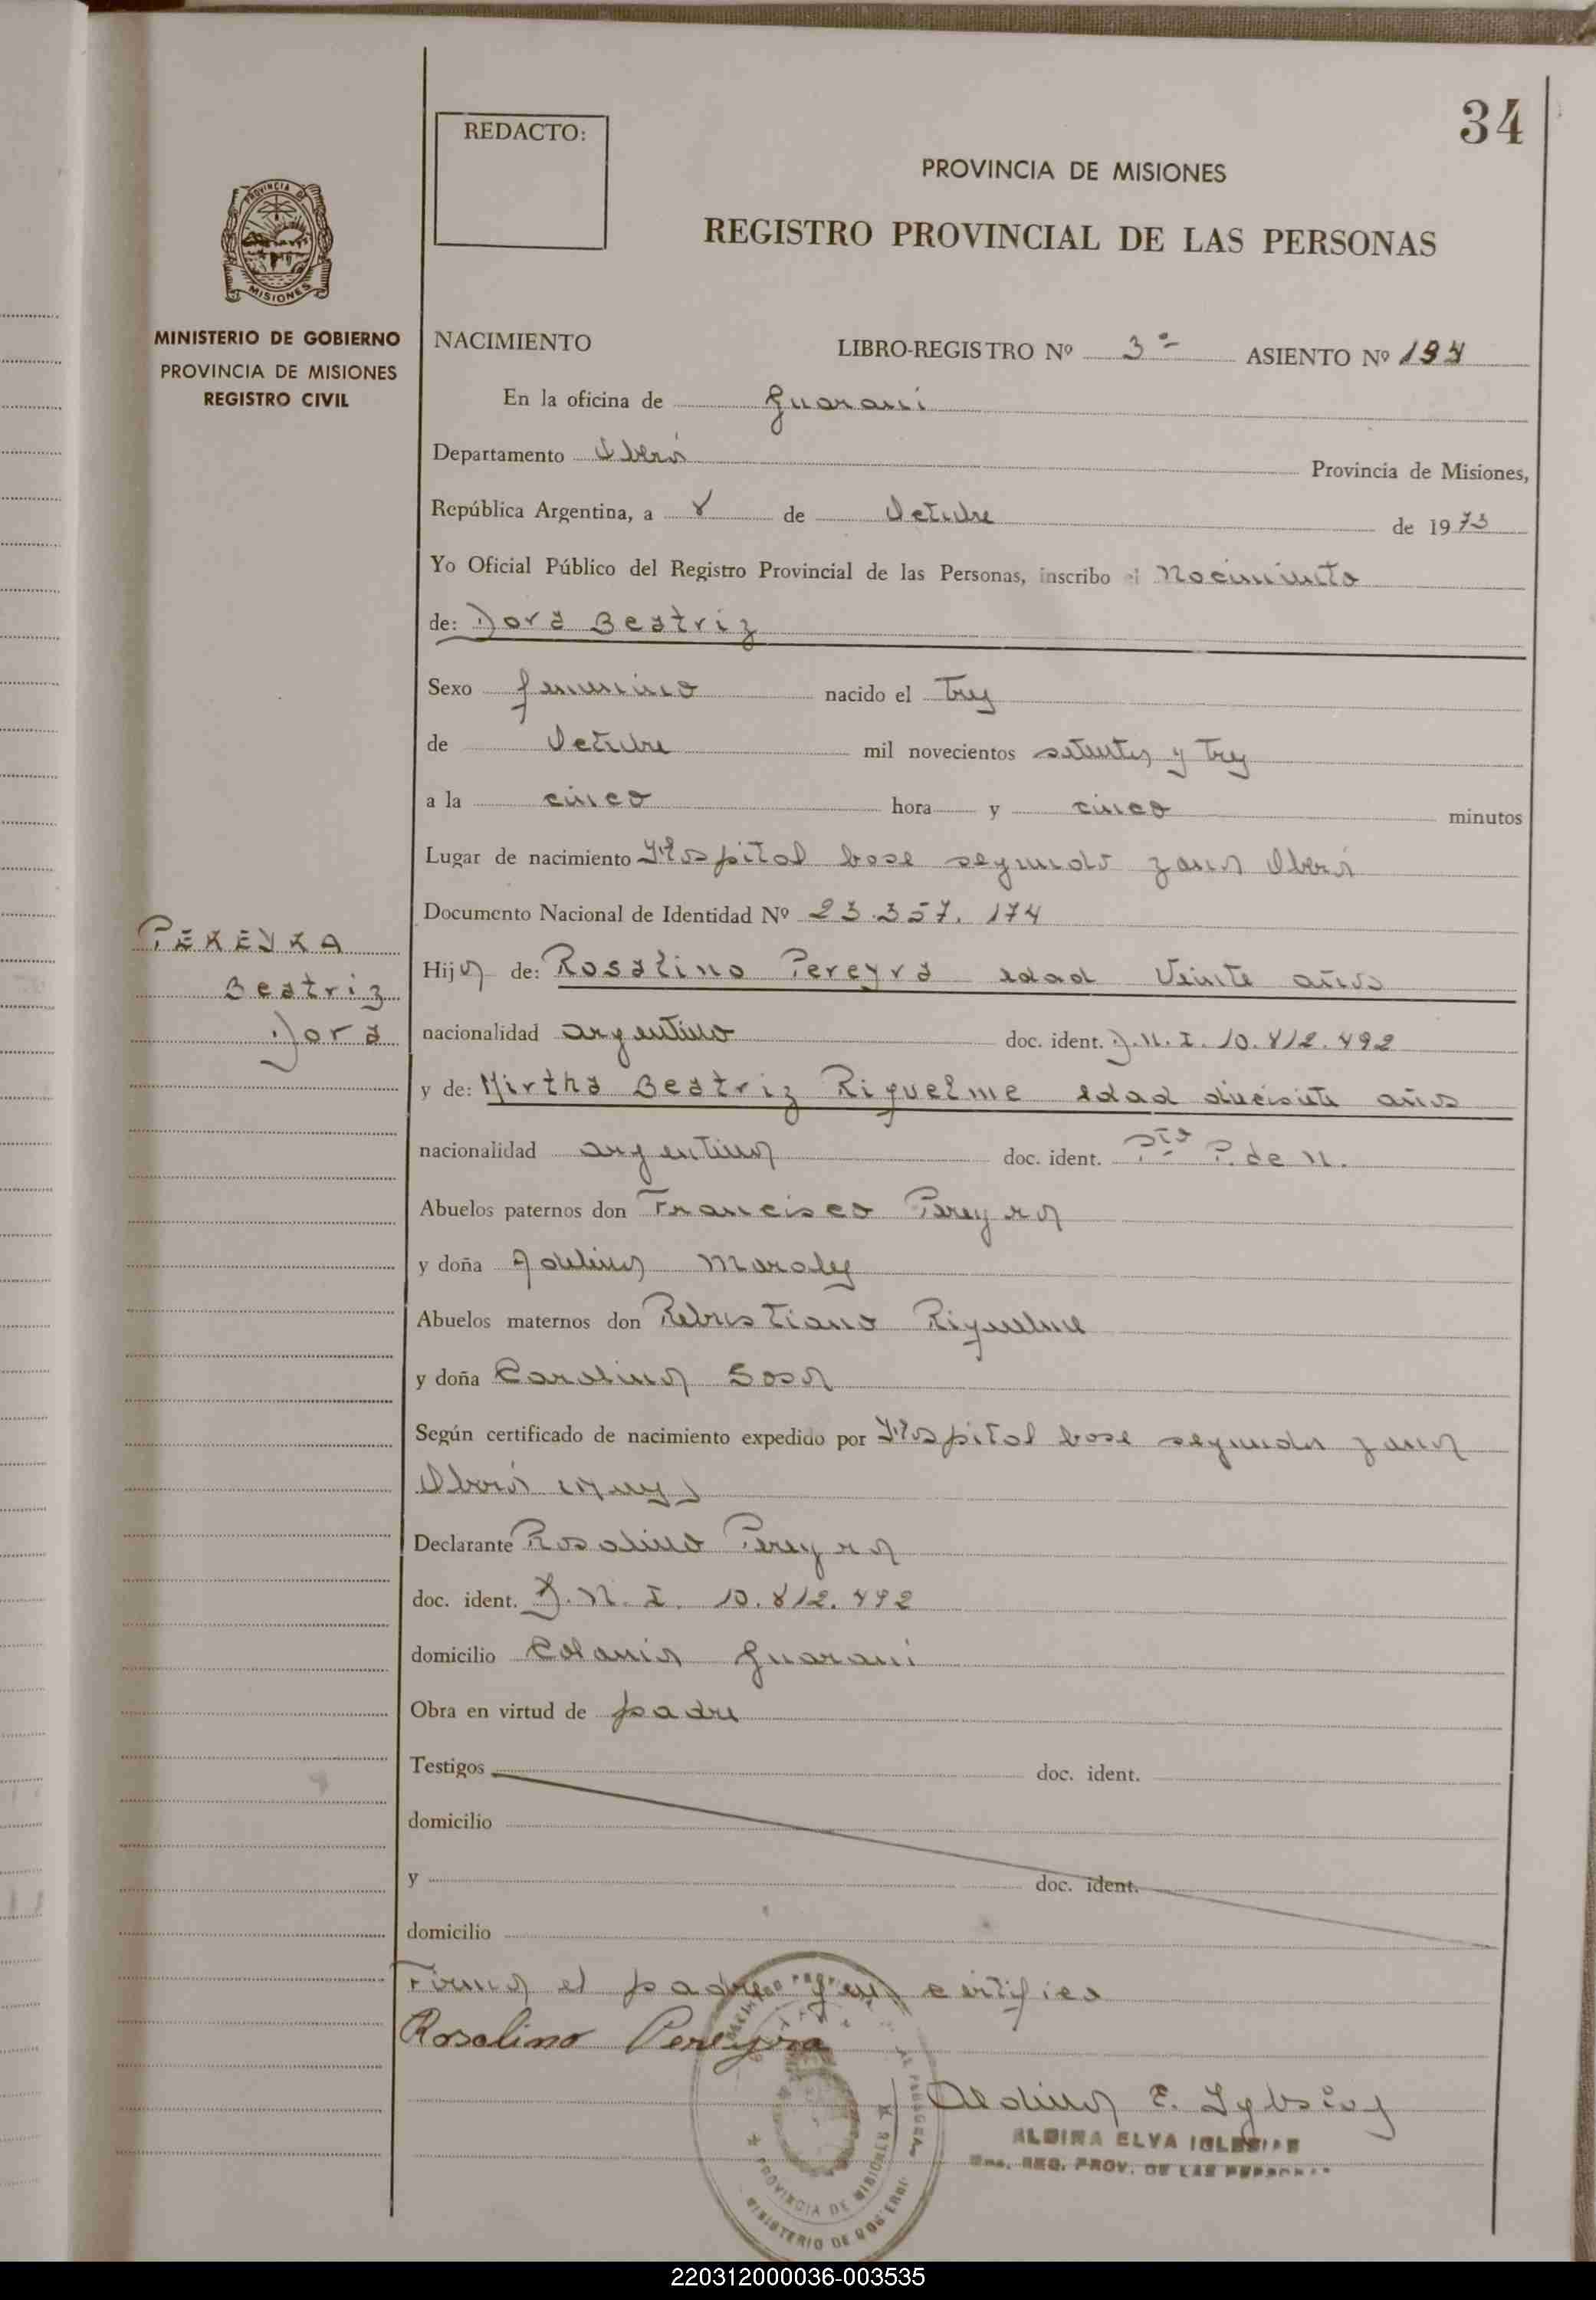 34
REDACTO:
PROVINCIA DE MISIONES
REGISTRO PROVINCIAL DE LAS PERSONAS
PROVINCIA DE
MISIONES
MINISTERIO DE GOBIERNO
PROVINCIA DE MISIONES
REGISTRO CIVIL
NACIMIENTO LIBRO-REGISTRO Nº 3º ASIENTO Nº 194
En la oficina de Guarani
Departamento Oberá Provincia de Misiones,
República Argentina, a 8 de Octubre de 1973
Yo Oficial Público del Registro Provincial de las Personas, inscribo el Nacimiento
de: Dora Beatriz
Sexo femenino nacido el Tres
de Octubre mil novecientos setenta y Tres
a la cinco hora y cinco minutos
Lugar de nacimiento Hospital base segunda zona Oberá
Documento Nacional de Identidad Nº 23.357.174
PEREYRA
Beatriz
Dora
Hija de: Rosalino Pereyra edad Veinte años
nacionalidad argentino doc. ident. D.N.I. 10.812.492
y de: Mirtha Beatriz Riquelme edad diecisiete años
nacionalidad argentina doc. ident. P. de N.
Abuelos paternos don Francisco Pereyra
y doña Adelina
Abuelos maternos don Riquelme
y doña Carolina Sosa
Según certificado de nacimiento expedido por Hospital base segunda zona
Oberá
Declarante Rosalino Pereyra
doc. ident. D.N.I. 10.812.492
domicilio Colonia Guarani
Obra en virtud de padre
Testigos doc. ident.
domicilio
y doc. ident.
domicilio
Firma el padre certifico
Rosalino Pereyra
Aldina E. Iglesias
ALDINA ELVA IGLESIAS
REG. PROV. DE LAS PERSONAS
PROVINCIA DE MISIONES
MINISTERIO DE GOBIERNO
220312000036-003535